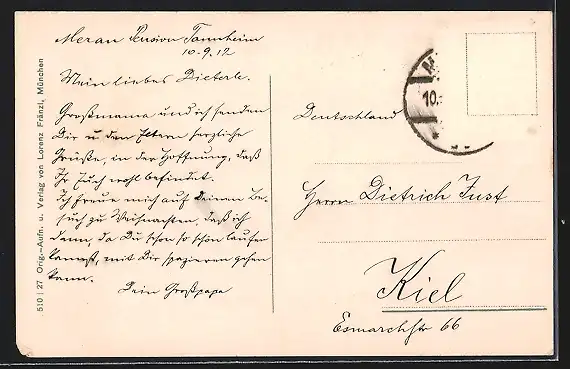 Meran Pension Tannheim
10.9.12
Mein liebes Dieterle.
Großmama und ich senden
Dir u den Eltern herzliche
Grüße, in der Hoffnung, daß
Ihr Euch wohl befindet.
Ich freue mich auf Deinen Be-
such zu Weihnachten, daß ich
dann, da Du schon so schön laufen
kannst, mit Dir spazieren gehen
kann.
Dein Großpapa
Deutschland
10.
Herrn Dietrich Just
Kiel
Esmarchstr 66
510 | 27 Orig.-Aufn. u. Verlag von Lorenz Fränzl, München